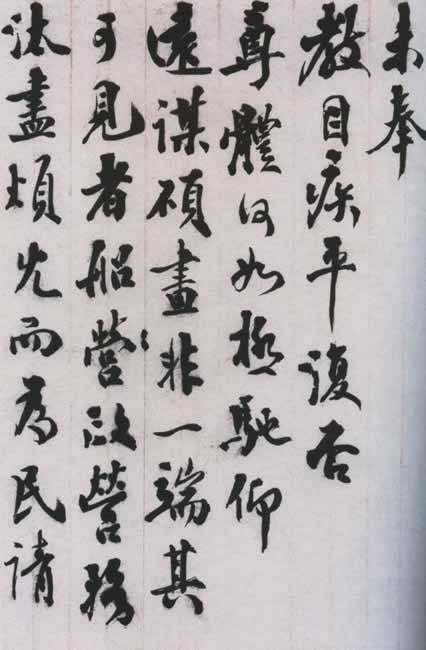 未奉
教目疾平復否
尊體何如極馳仰
遠謀碩畫非一端其
可見者船營營務
汰盡煩冗而為民請